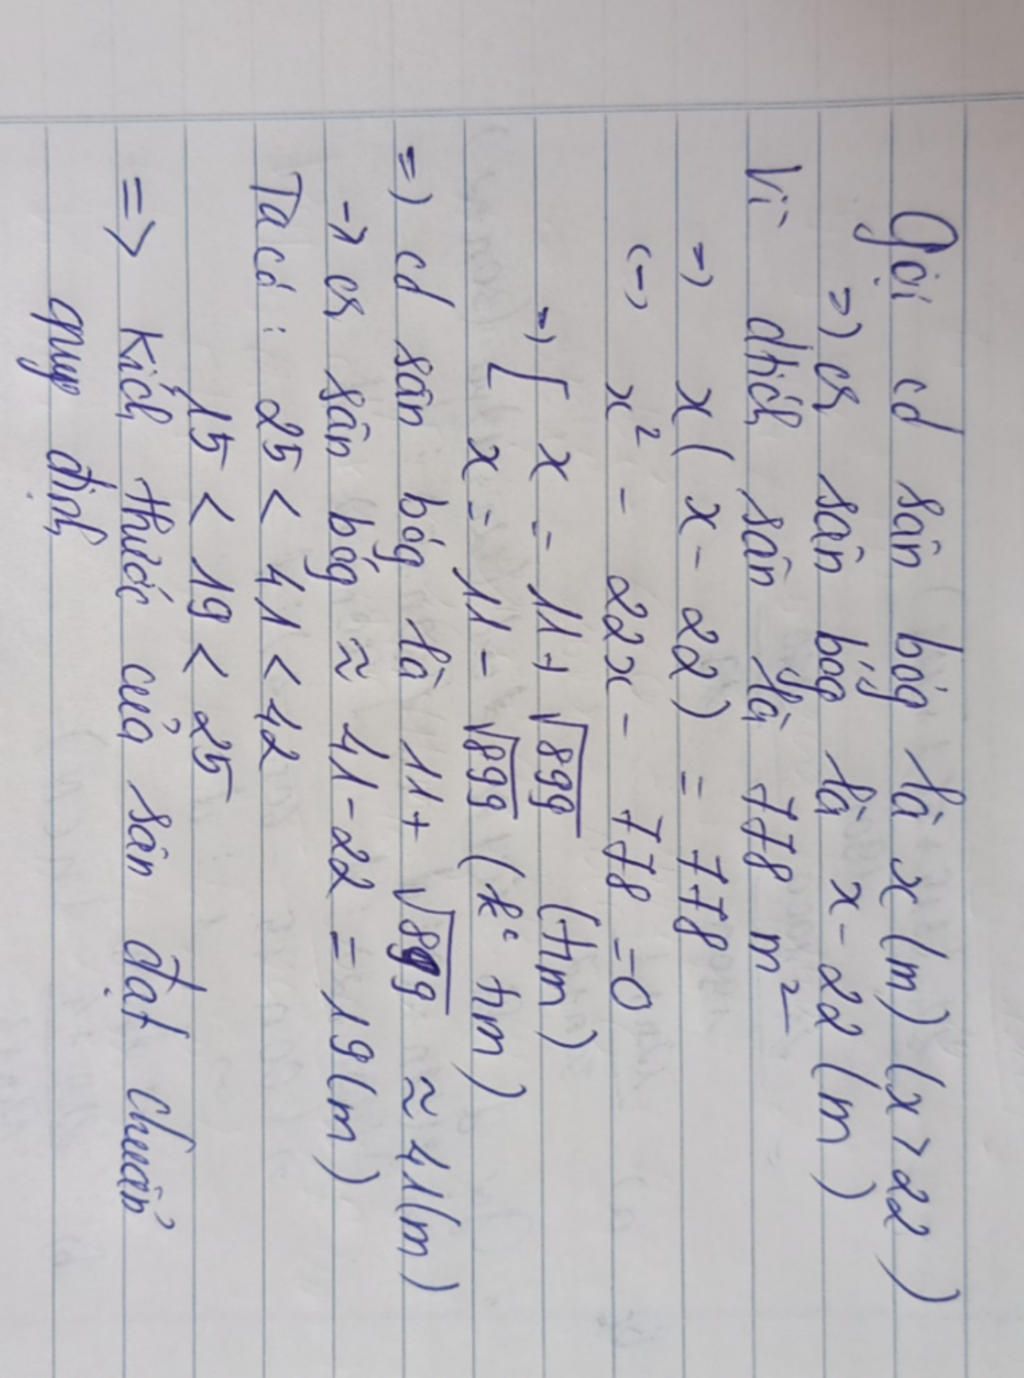 Gọi cd sân bóg là x (m) (x > 22)
=) cr sân bóg là x - 22 (m)
Vì dtích sân là 778 m²
=) x (x - 22) = 778
(=) x² - 22x - 778 = 0
=) [ x = 11 + √899 (tm)
x = 11 - √899 (k° tm)
=) cd sân bóg là 11 + √899 ≈ 41 (m)
→ cr sân bóg ≈ 41 - 22 = 19 (m)
Ta có : 25 < 41 < 42
15 < 19 < 25
=> Kích thước của sân đạt chuẩn
quy định